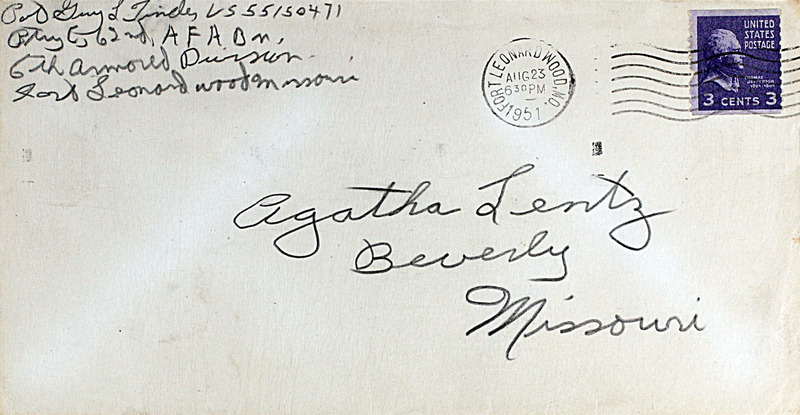 Pvt Guy L Tindle, US 55150471
Btry C, 62nd, A F A Bn,
6th Armored Division
Fort Leonard wood Missouri
FORT LEONARD WOOD, MO.
AUG 23
630 PM
1951
UNITED
STATES
POSTAGE
THOMAS
JEFFERSON
3 CENTS 3
Agatha Lentz
Beverly
Missouri